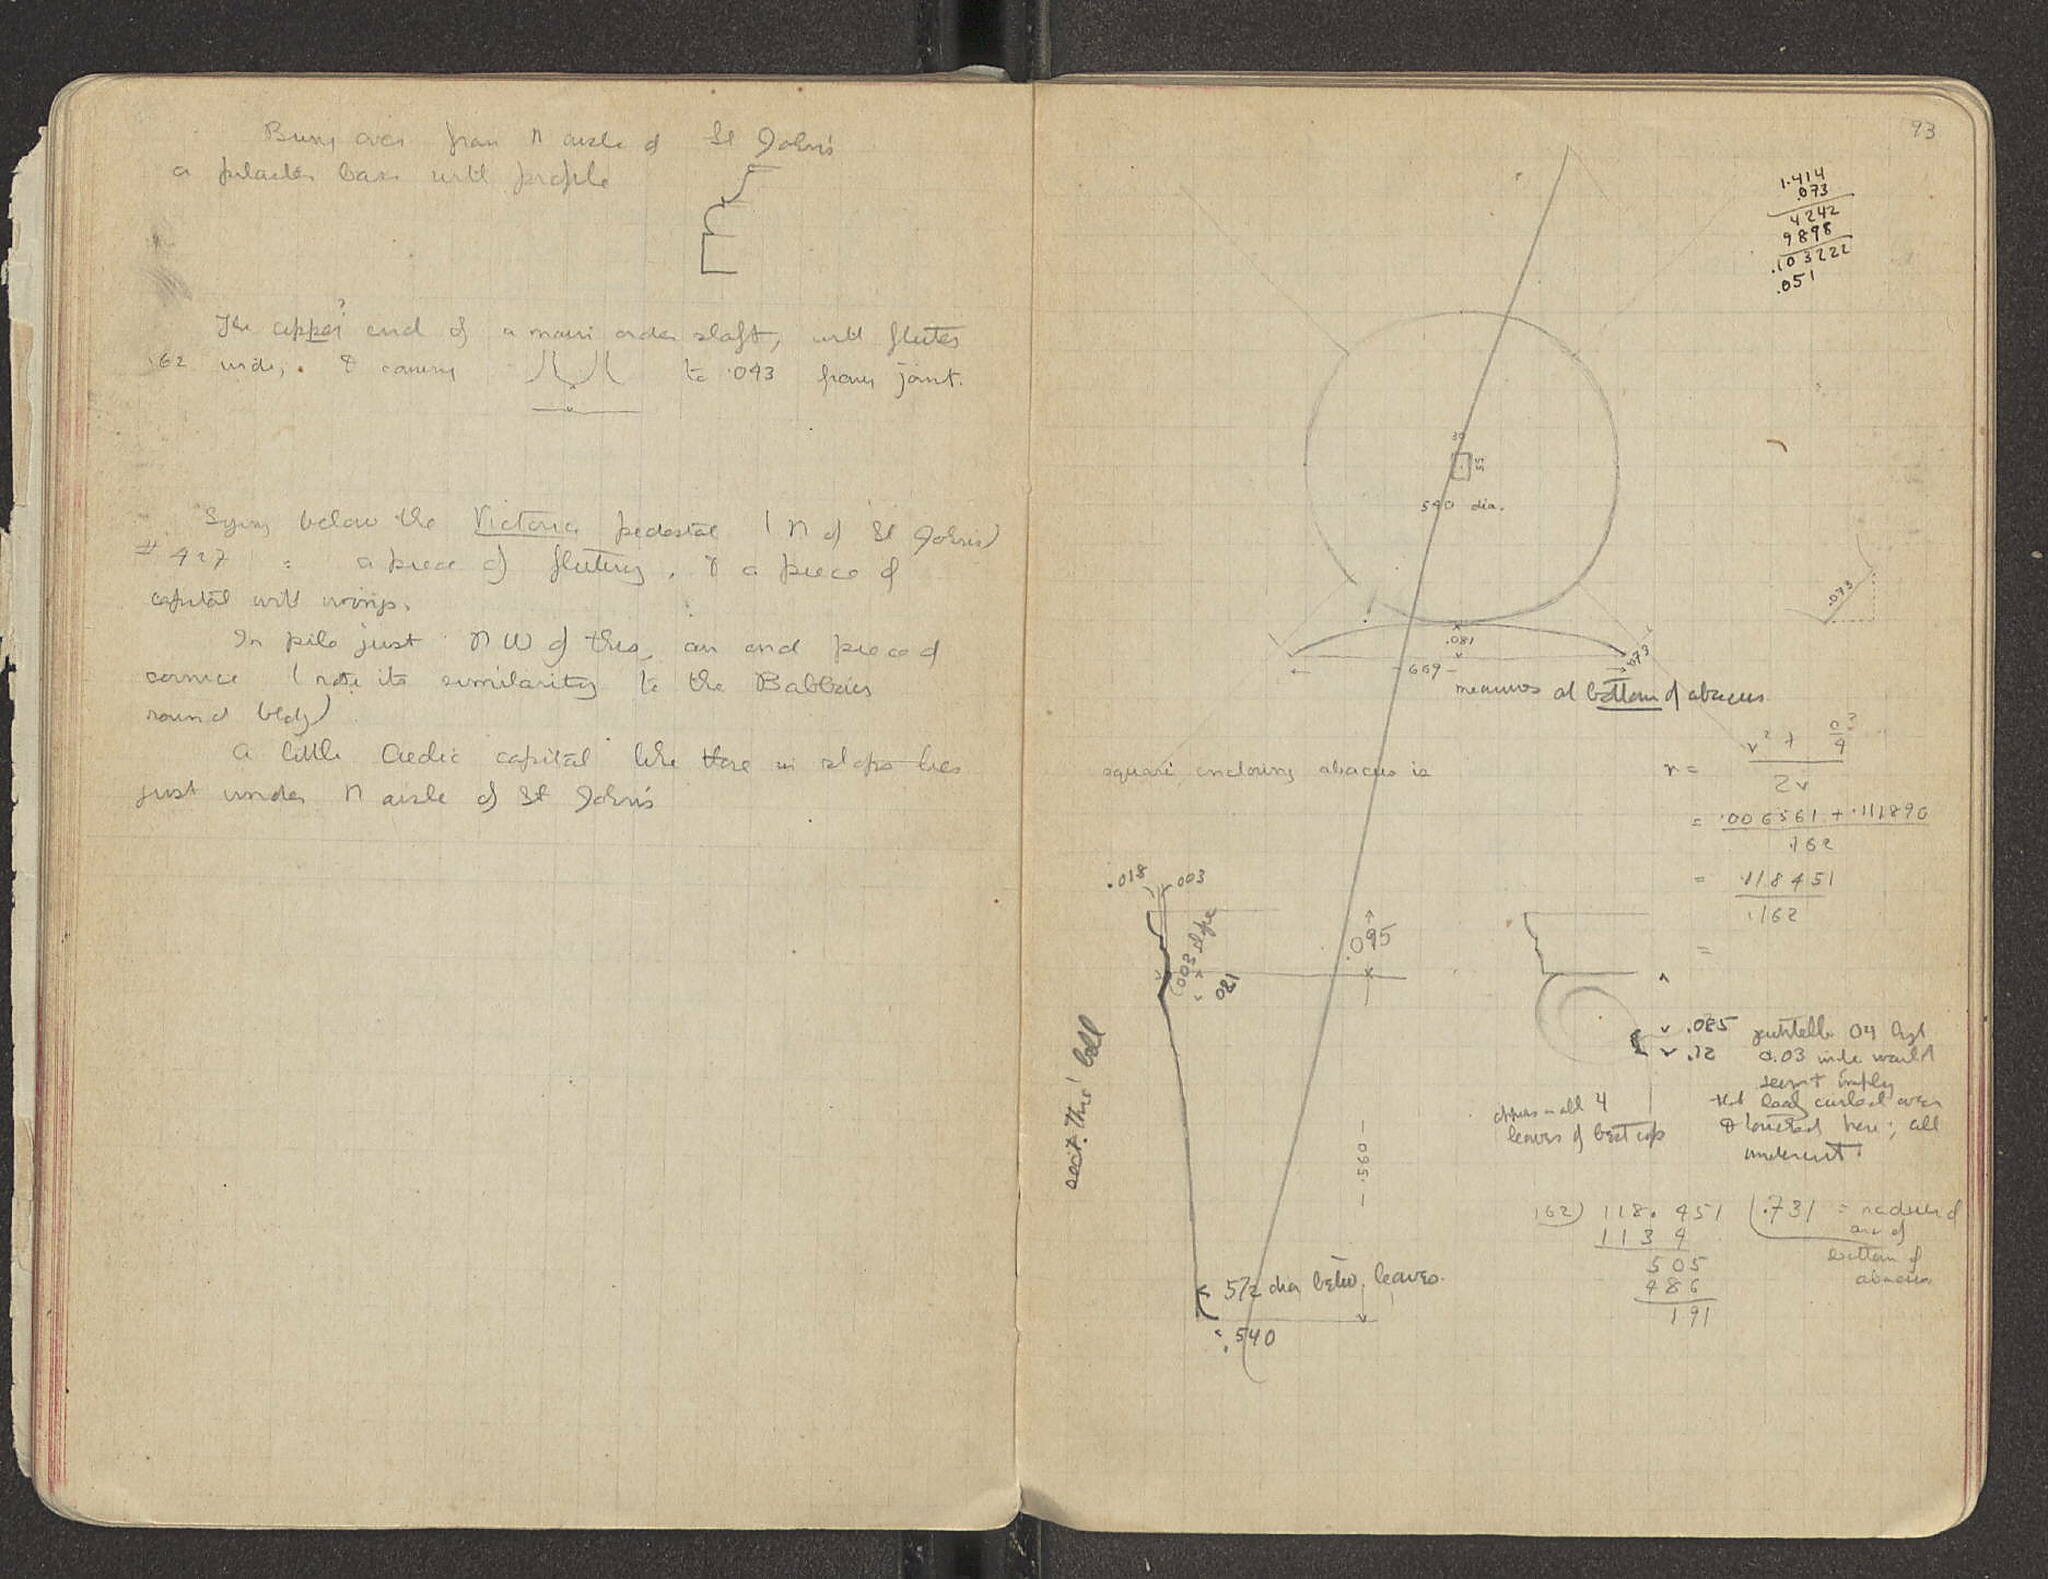 Bring over from N aisle of St John's
a pilaster base with profile
?
The upper end of a main order shaft, with flutes
.62 wide, & coming to .043 from joint.
Lying below the Victoria pedestal (N of St Johns)
# 427 : a piece of fluting, & a piece of
capital with wings.
In pile just NW of this, an end piece of
cornice (note its similarity to the Babbeies
round bldg)
A little Aedic capital like those in slops lies
just under N aisle of St John's
93
1.414
.073
4242
9898
.103222
.051
30
540 dia.
!
.081
.073
- 669 -
.073
measures at bottom of abacus
square enclosing abacus is
r = v² + c²/4
2v
= .006561 + .111890
.162
= .118451
.162
=
.018 003
(003 slope
081
.095
sect. thro' bell
- .560 -
572 dia betw. leaves.
.540
.085 puntello 04 hgt
.12 0.03 wide would
seem t imply
that leaf curled over
& touched here; all
undercut.
appears in all 4
leaves of best cap
162) 118.451 (.731 = radius of
arc of
bottom of
abacus
1134
505
486
191